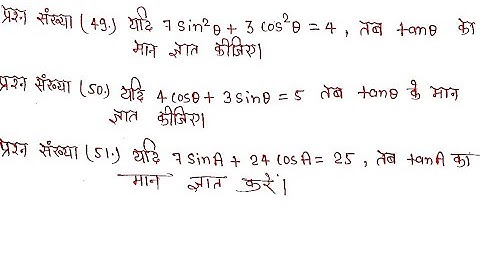 प्रश्न संख्या (49.) यदि 7 sin²θ + 3 cos²θ = 4 , तब tanθ का
मान ज्ञात कीजिए।
प्रश्न संख्या (50.) यदि 4 cosθ + 3 sinθ = 5 तब tanθ के मान
ज्ञात कीजिए।
प्रश्न संख्या (51.) यदि 7 sinA + 24 cosA = 25 , तब tanA का
मान ज्ञात करें।